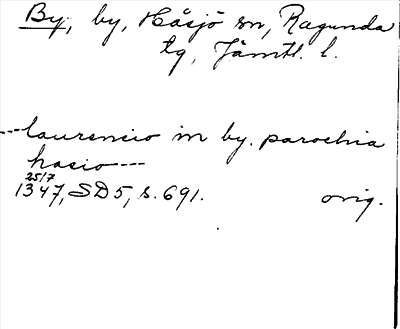 By, by, Håsjö sn, Ragunda
tg, Jämtl. l.
---laurencio in by. parochia
hasio---
25/7
1347, SD5, s. 691. orig.